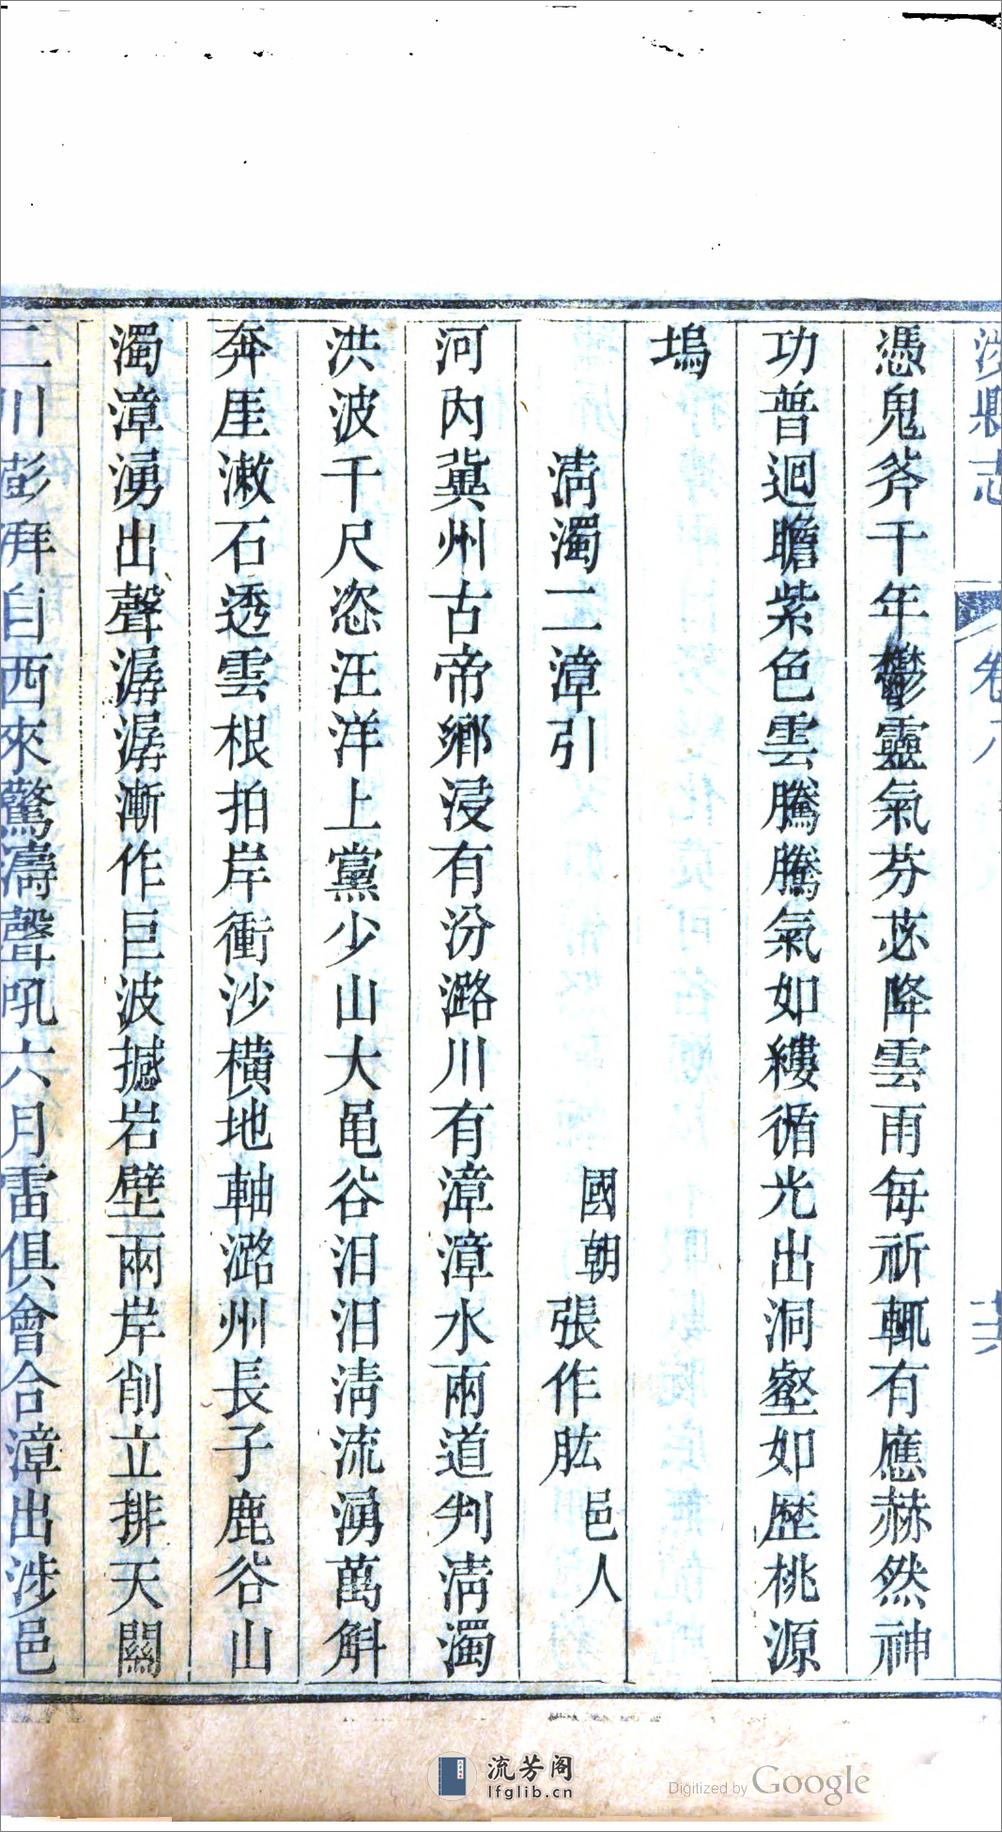 涉縣志
卷八
憑鬼斧千年鬱靈氣芬苾降雲雨每祈輒有應赫然神
功普迴瞻紫色雲騰騰氣如縷循光出洞壑如歷桃源
塢
淸濁二漳引
國朝張作肱邑人
河內冀州古帝鄉浸有汾潞川有漳漳水兩道判淸濁
洪波千尺恣汪洋上黨少山大黽谷汨汨淸流湧萬斛
奔厓漱石透雲根拍岸衝沙橫地軸潞州長子鹿谷山
濁漳湧出聲潺潺漸作巨波撼岩壁兩岸削立排天關
二川彭湃自西來驚濤聲吼六月雷俱會合漳出涉邑
流芳阁
lfglib.cn
Digitized by Google